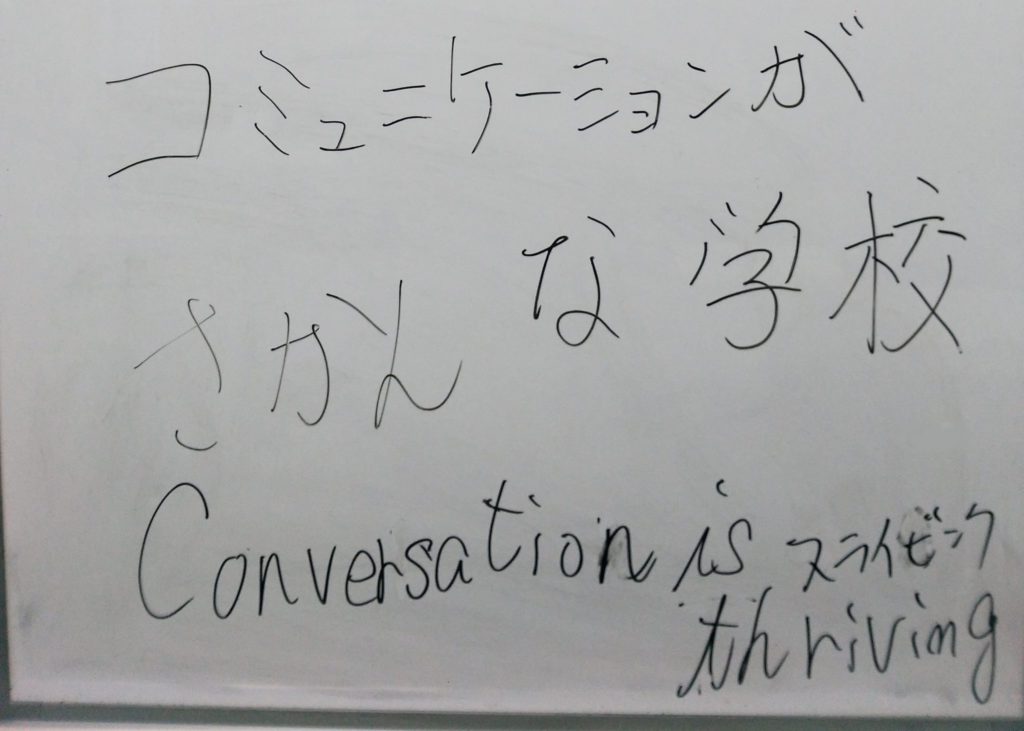 コミュニケーションが
さかんな学校
Conversation is
スライビング
thriving